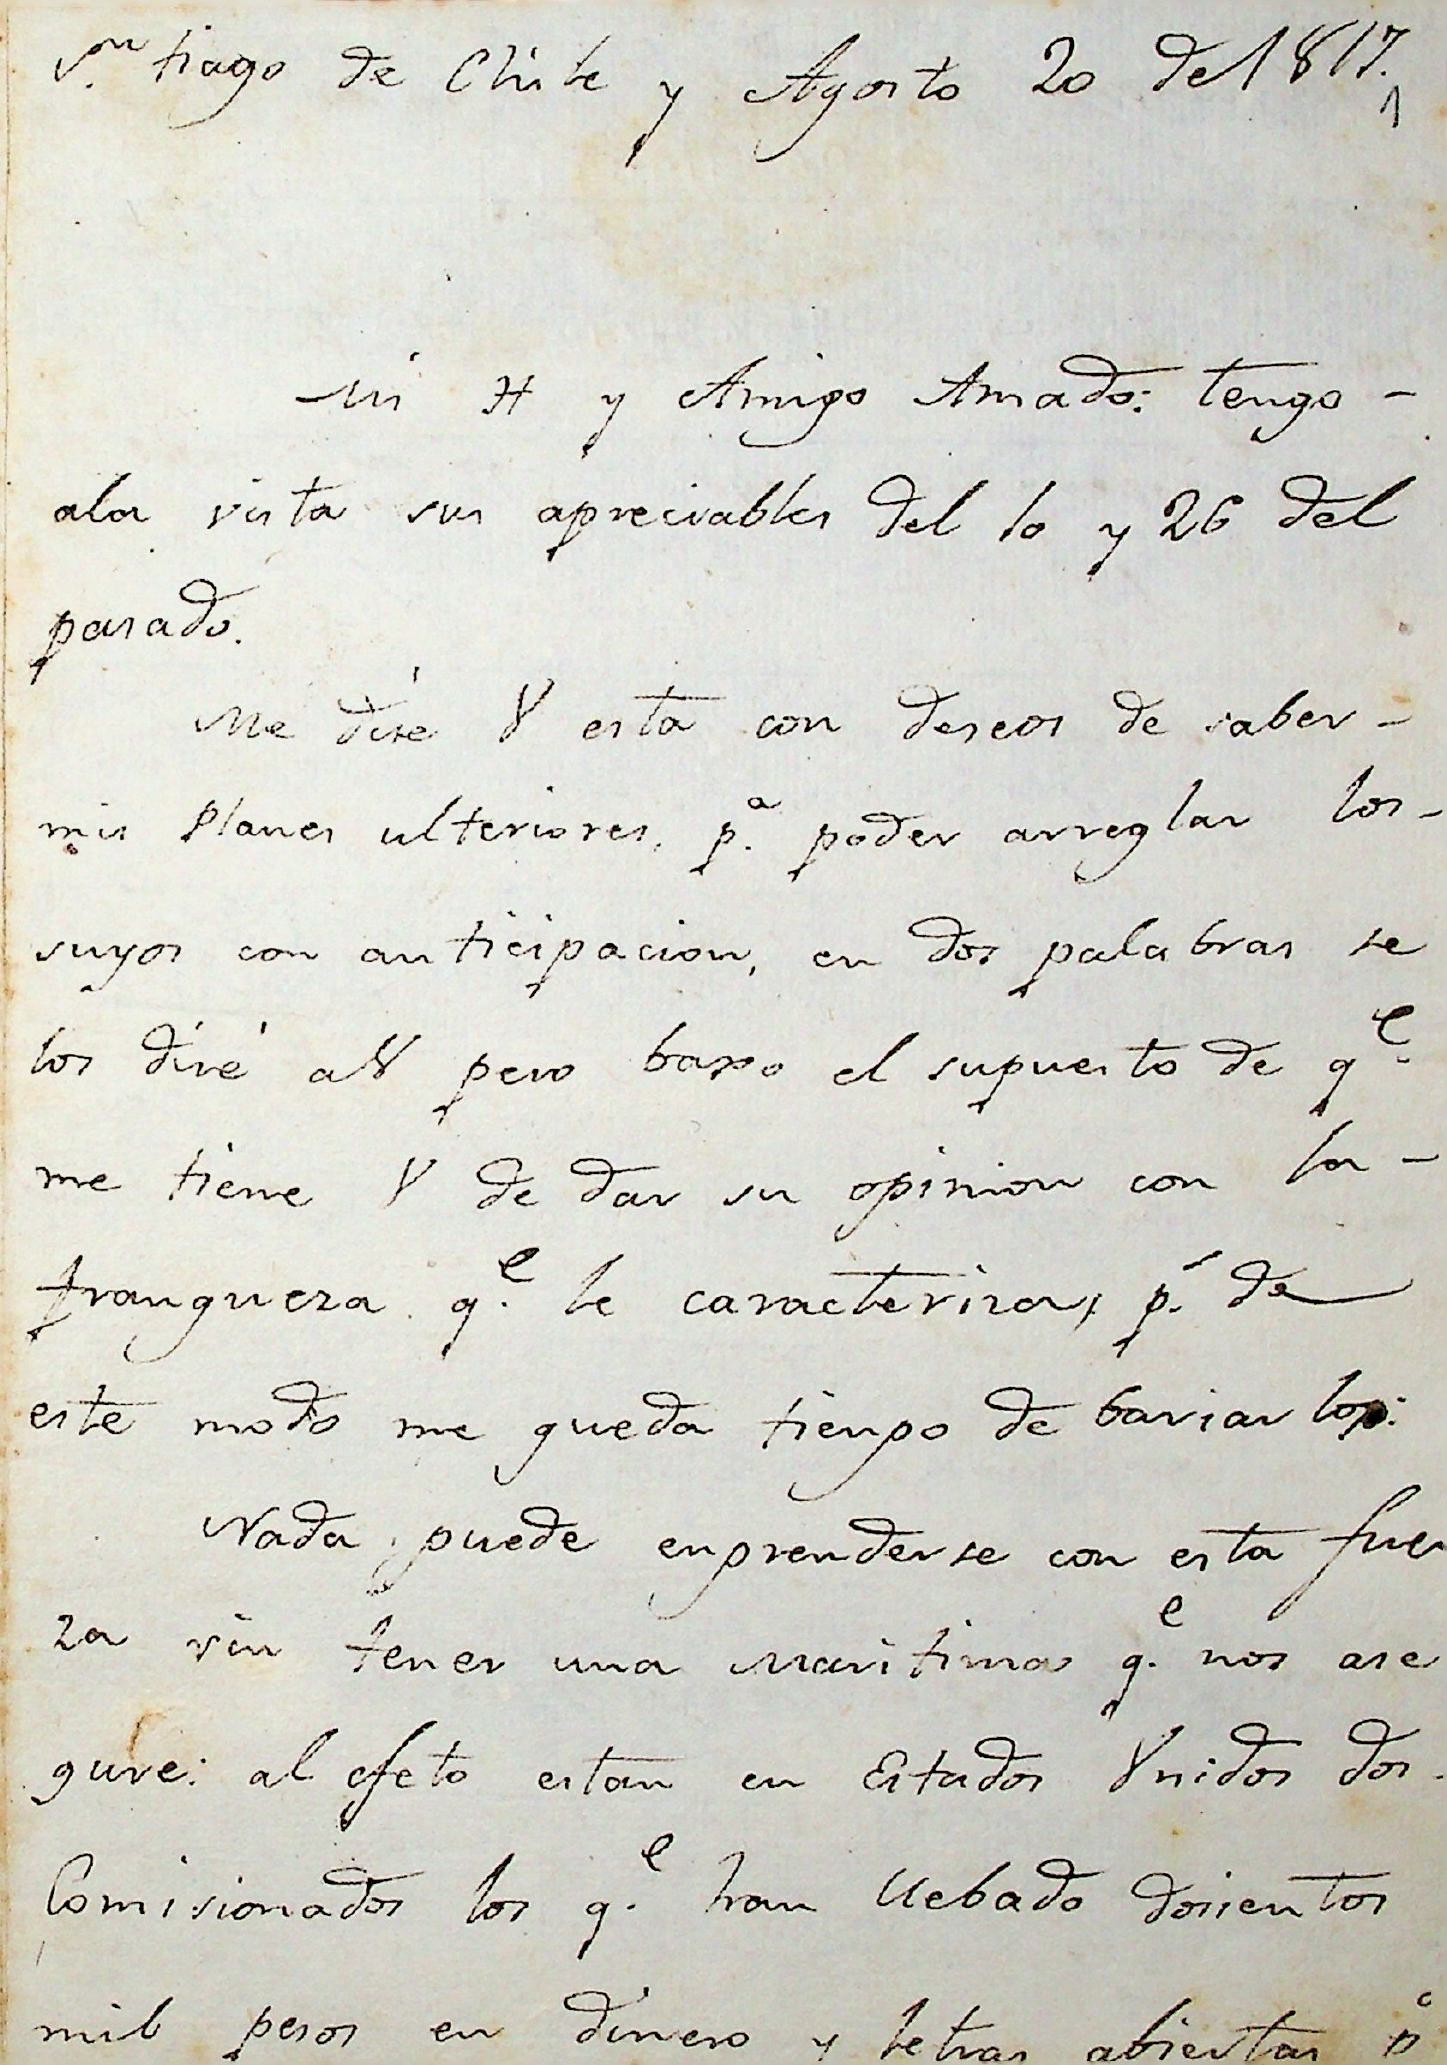 Sn. tiago de Chile y Agosto 20 de 1817.
1
Mi H y Amigo Amado: tengo -
ala vista sus apreciables del 10 y 26 del
pasado.
Me dise V esta con deseos de saber -
mis Planes ulteriores, pa. poder arreglar los -
suyos con anticipacion, en dos palabras se
los diré a V pero baxo el supuesto de qe.
me tiene V de dar su opinion con la -
franqueza qe. le caracteriza, p.r de
este modo me queda tienpo de bariarlos:
Nada puede enprenderse con esta fuer
za sin tener una Maritima qe. nos ase
gure: al efeto estan en Estados Vnidos dos
Comisionados los qe. han llebado dosientos
mil pesos en dinero y letras abiertas pa